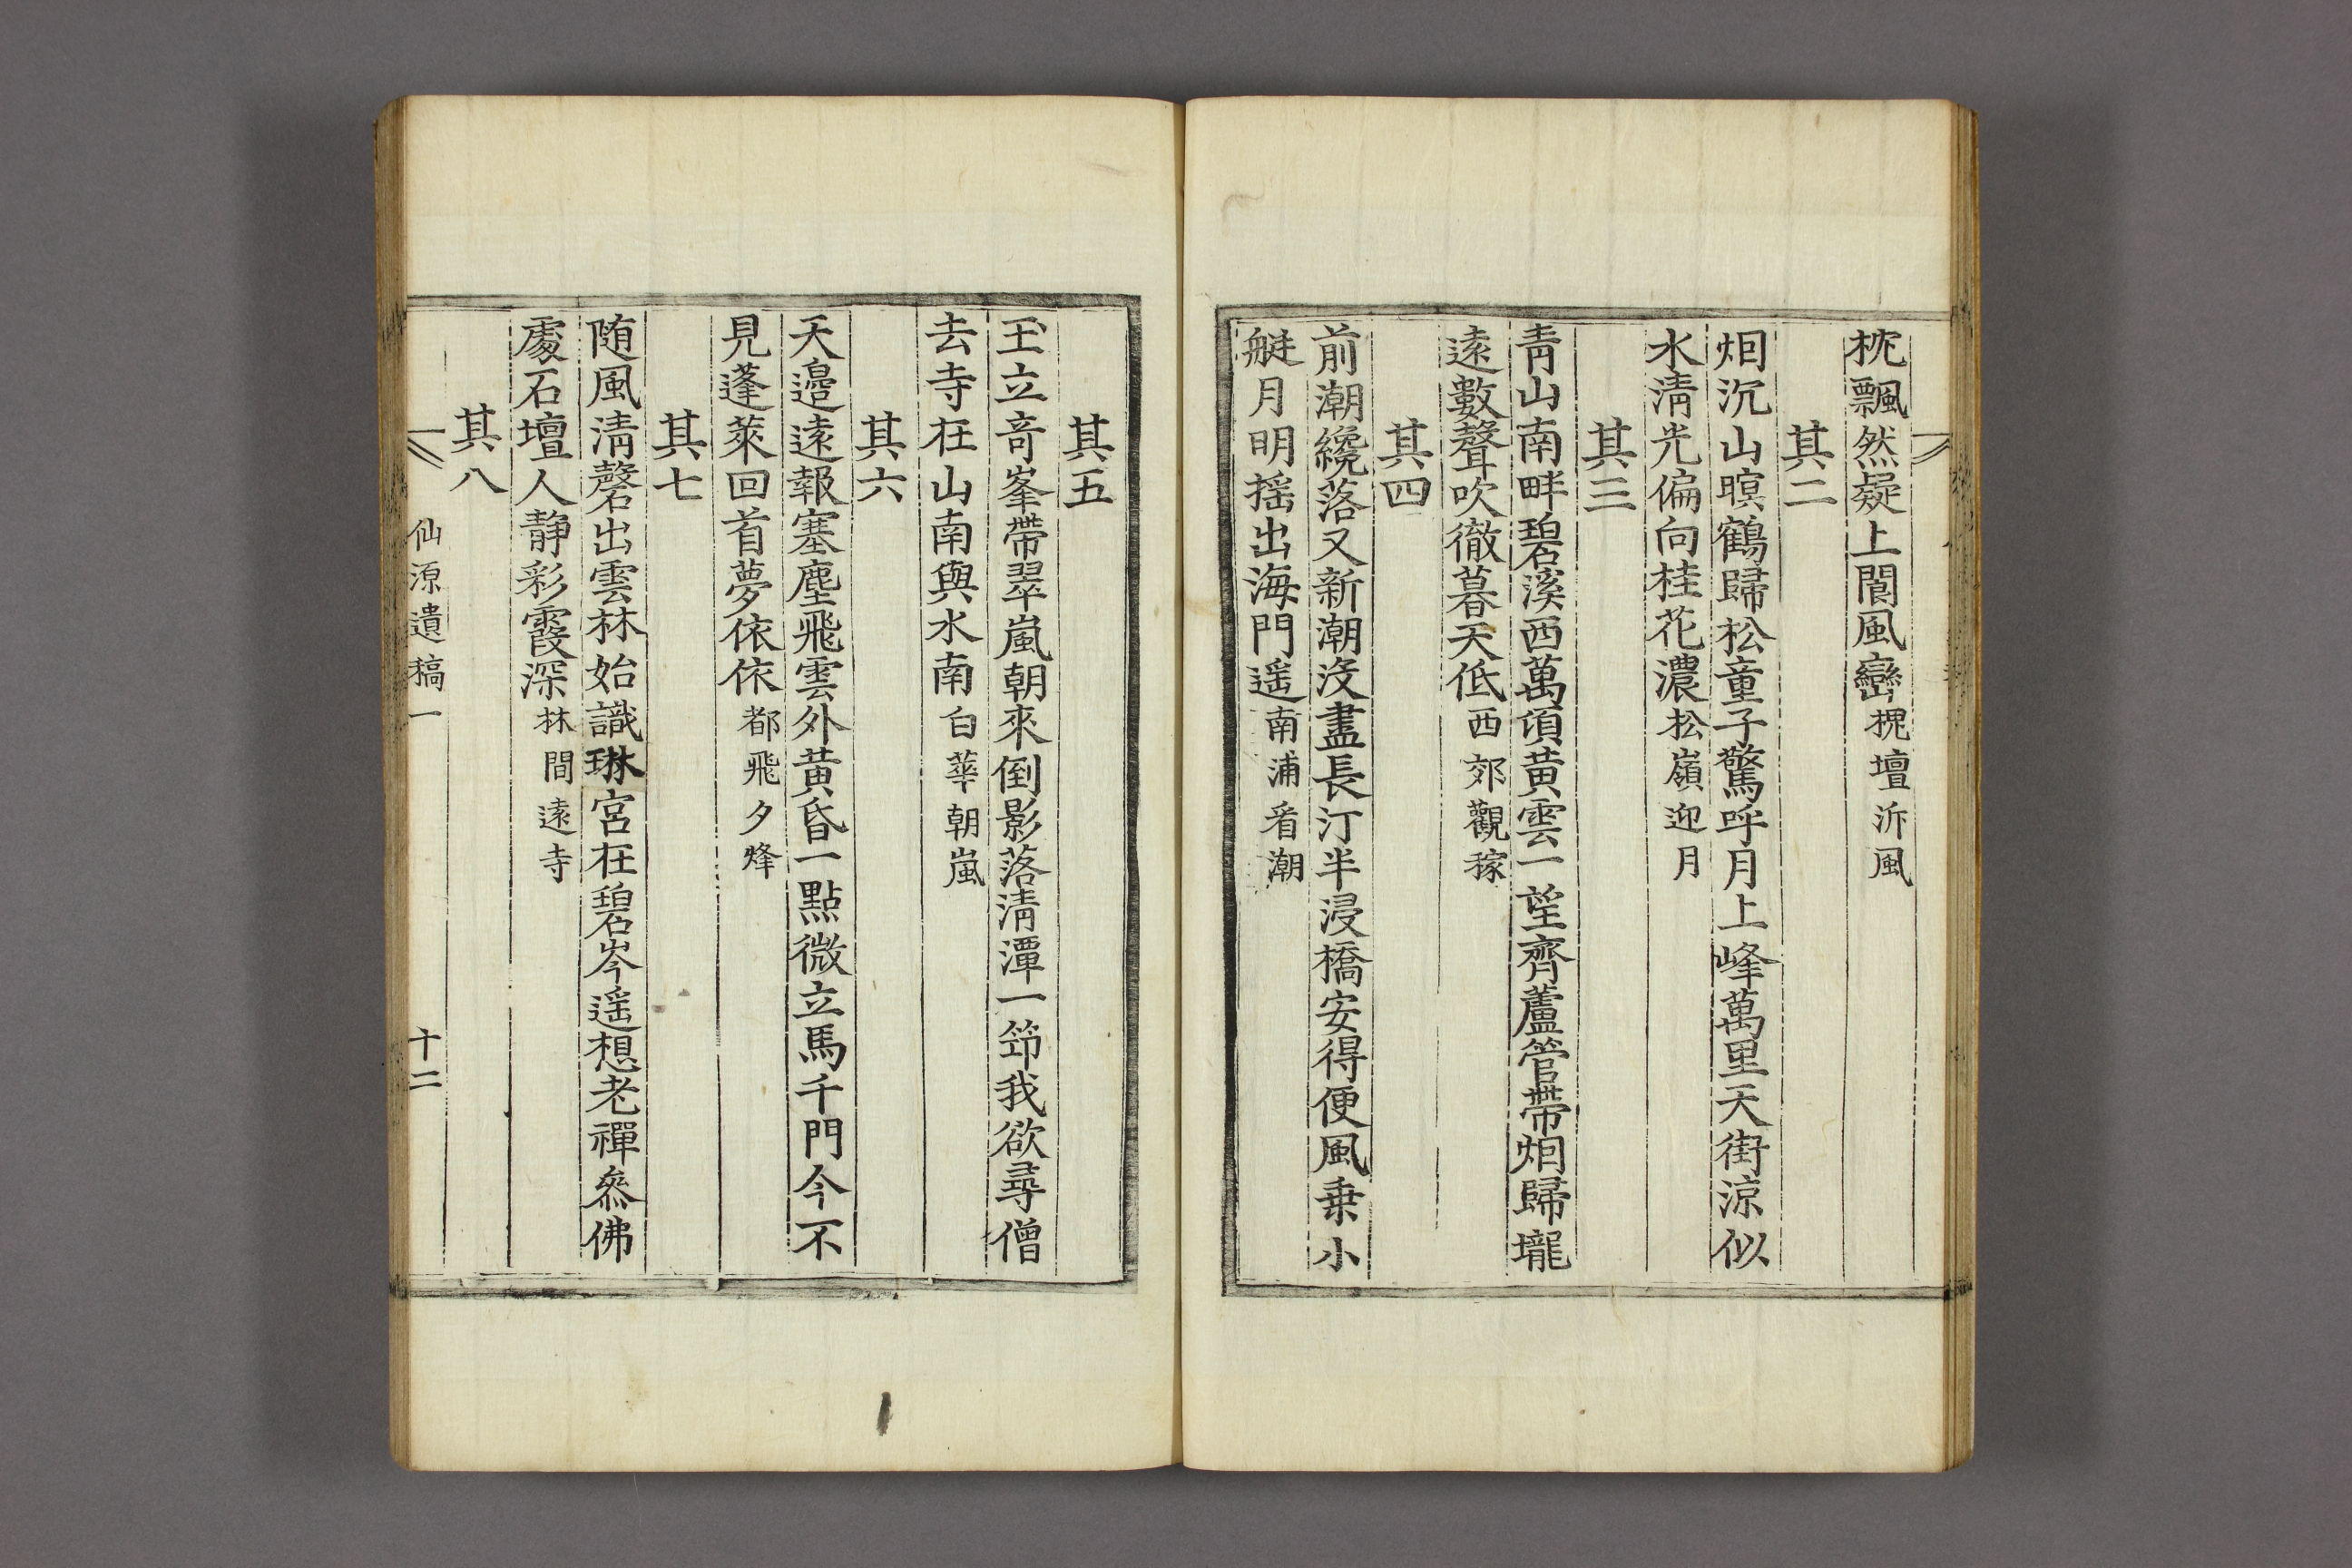 枕飄然疑上閬風巒槐壇泝風
其二
烟沉山暝鶴歸松童子驚呼月上峰萬里天街涼似
水淸光偏向桂花濃松嶺迎月
其三
靑山南畔碧溪西萬頃黃雲一望齊蘆管帶烟歸壠
遠數聲吹徹暮天低西郊觀稼
其四
前潮纔落又新潮沒盡長汀半浸橋安得便風乗小
艇月明揺出海門遥南浦看潮
其五
玉立竒峯帶翠嵐朝來倒影落淸潭一笻我欲尋僧
去寺在山南與水南白華朝嵐
其六
天邊遠報塞塵飛雲外黃昏一點微立馬千門今不
見蓬萊回首夢依依都飛夕烽
其七
随風淸磬出雲林始識琳宮在碧岑遥想老禪叅佛
處石壇人静彩霞深林間遠寺
其八
仙源遺稿一
十二